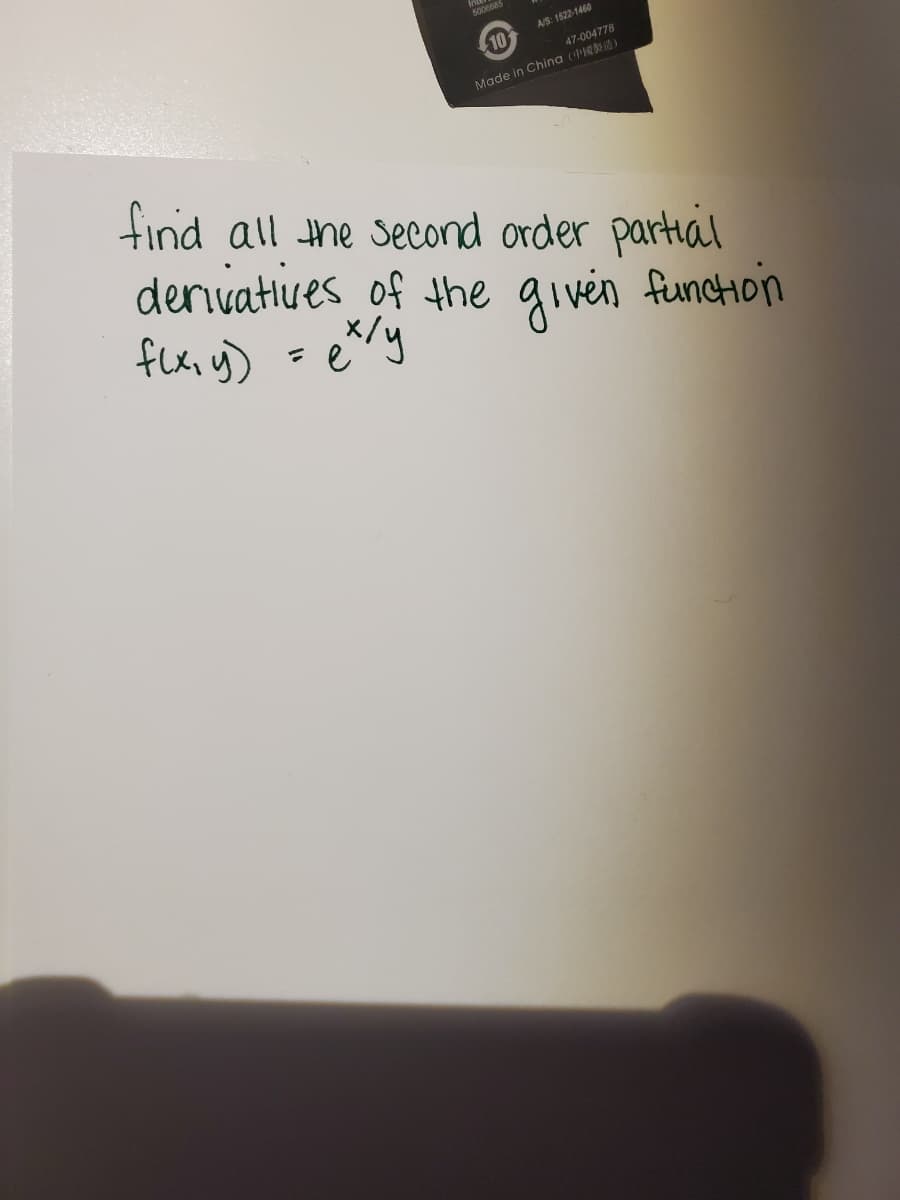 5006685
A/S: 1522-1460
10
47-004778
Made in China (中國製造)
find all the second order partial
derivatives of the given function
f(x, y) = e^x/y